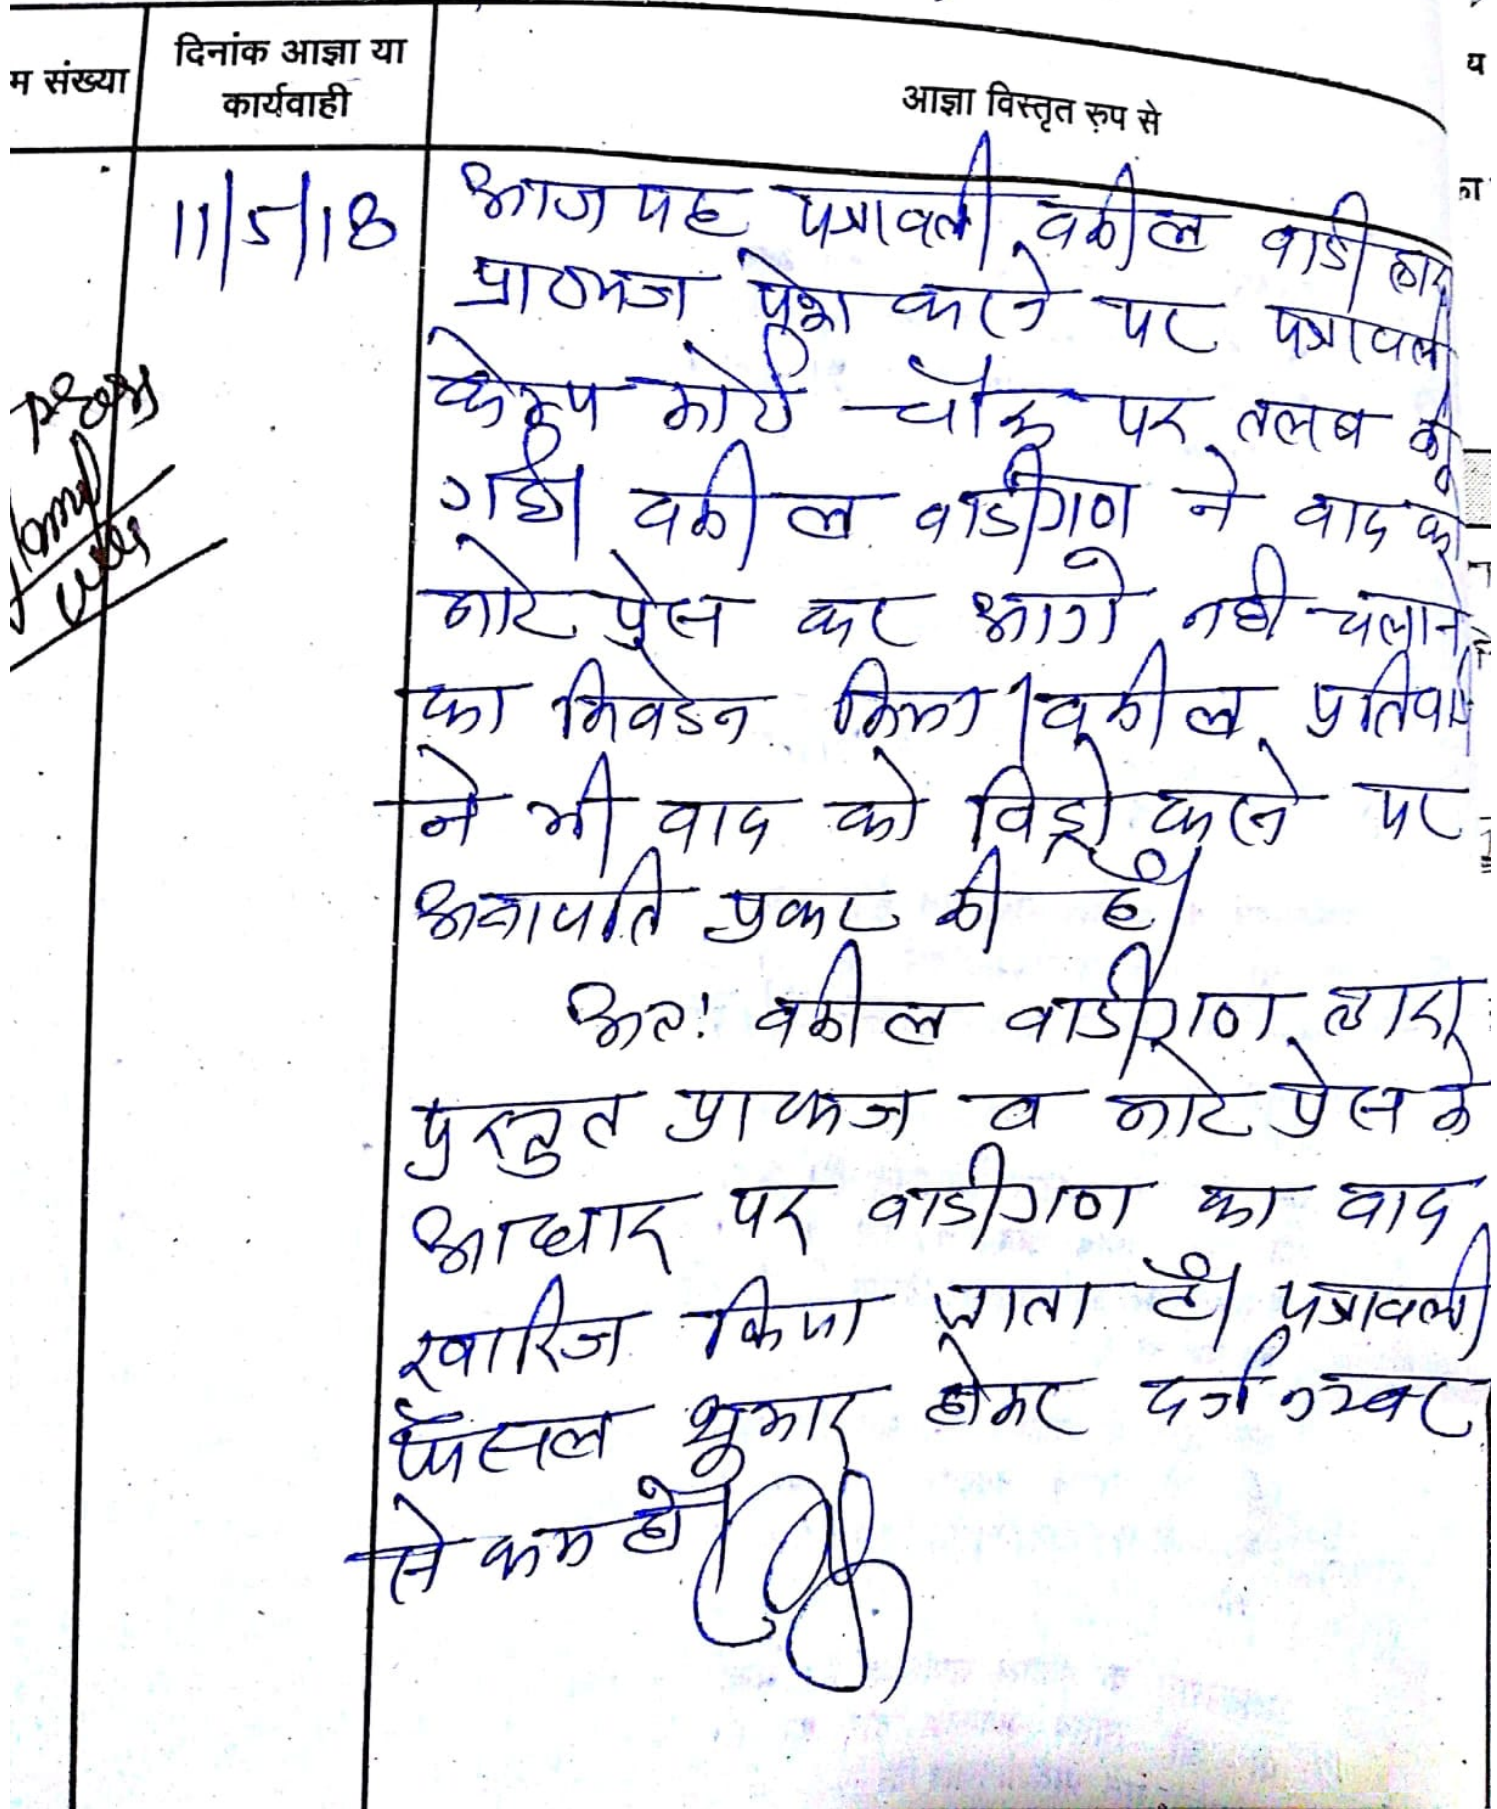 म संख्या
दिनांक आज्ञा या
कार्यवाही
आज्ञा विस्तृत रूप से
11/5/18
आज यह पत्रावली वकील वादी द्वारा
प्रा०पत्र पेश करने पर पत्रावली
केम्प कोर्ट चौक पर तलब की
गई। वकील वादीगण ने वाद को
नाट प्रेस कर आगे नही चलाने
का निवेदन किया। वकील प्रतिवादी
ने भी वाद को विड्रो करने पर
अनापति प्रकट की है।
अतः वकील वादीगण द्वारा
प्रस्तुत प्रा०पत्र व नाट प्रेस के
आधार पर वादीगण का वाद
खारिज किया जाता है। पत्रावली
फैसल शुमार होकर दर्ज नम्बर
से कम हो।